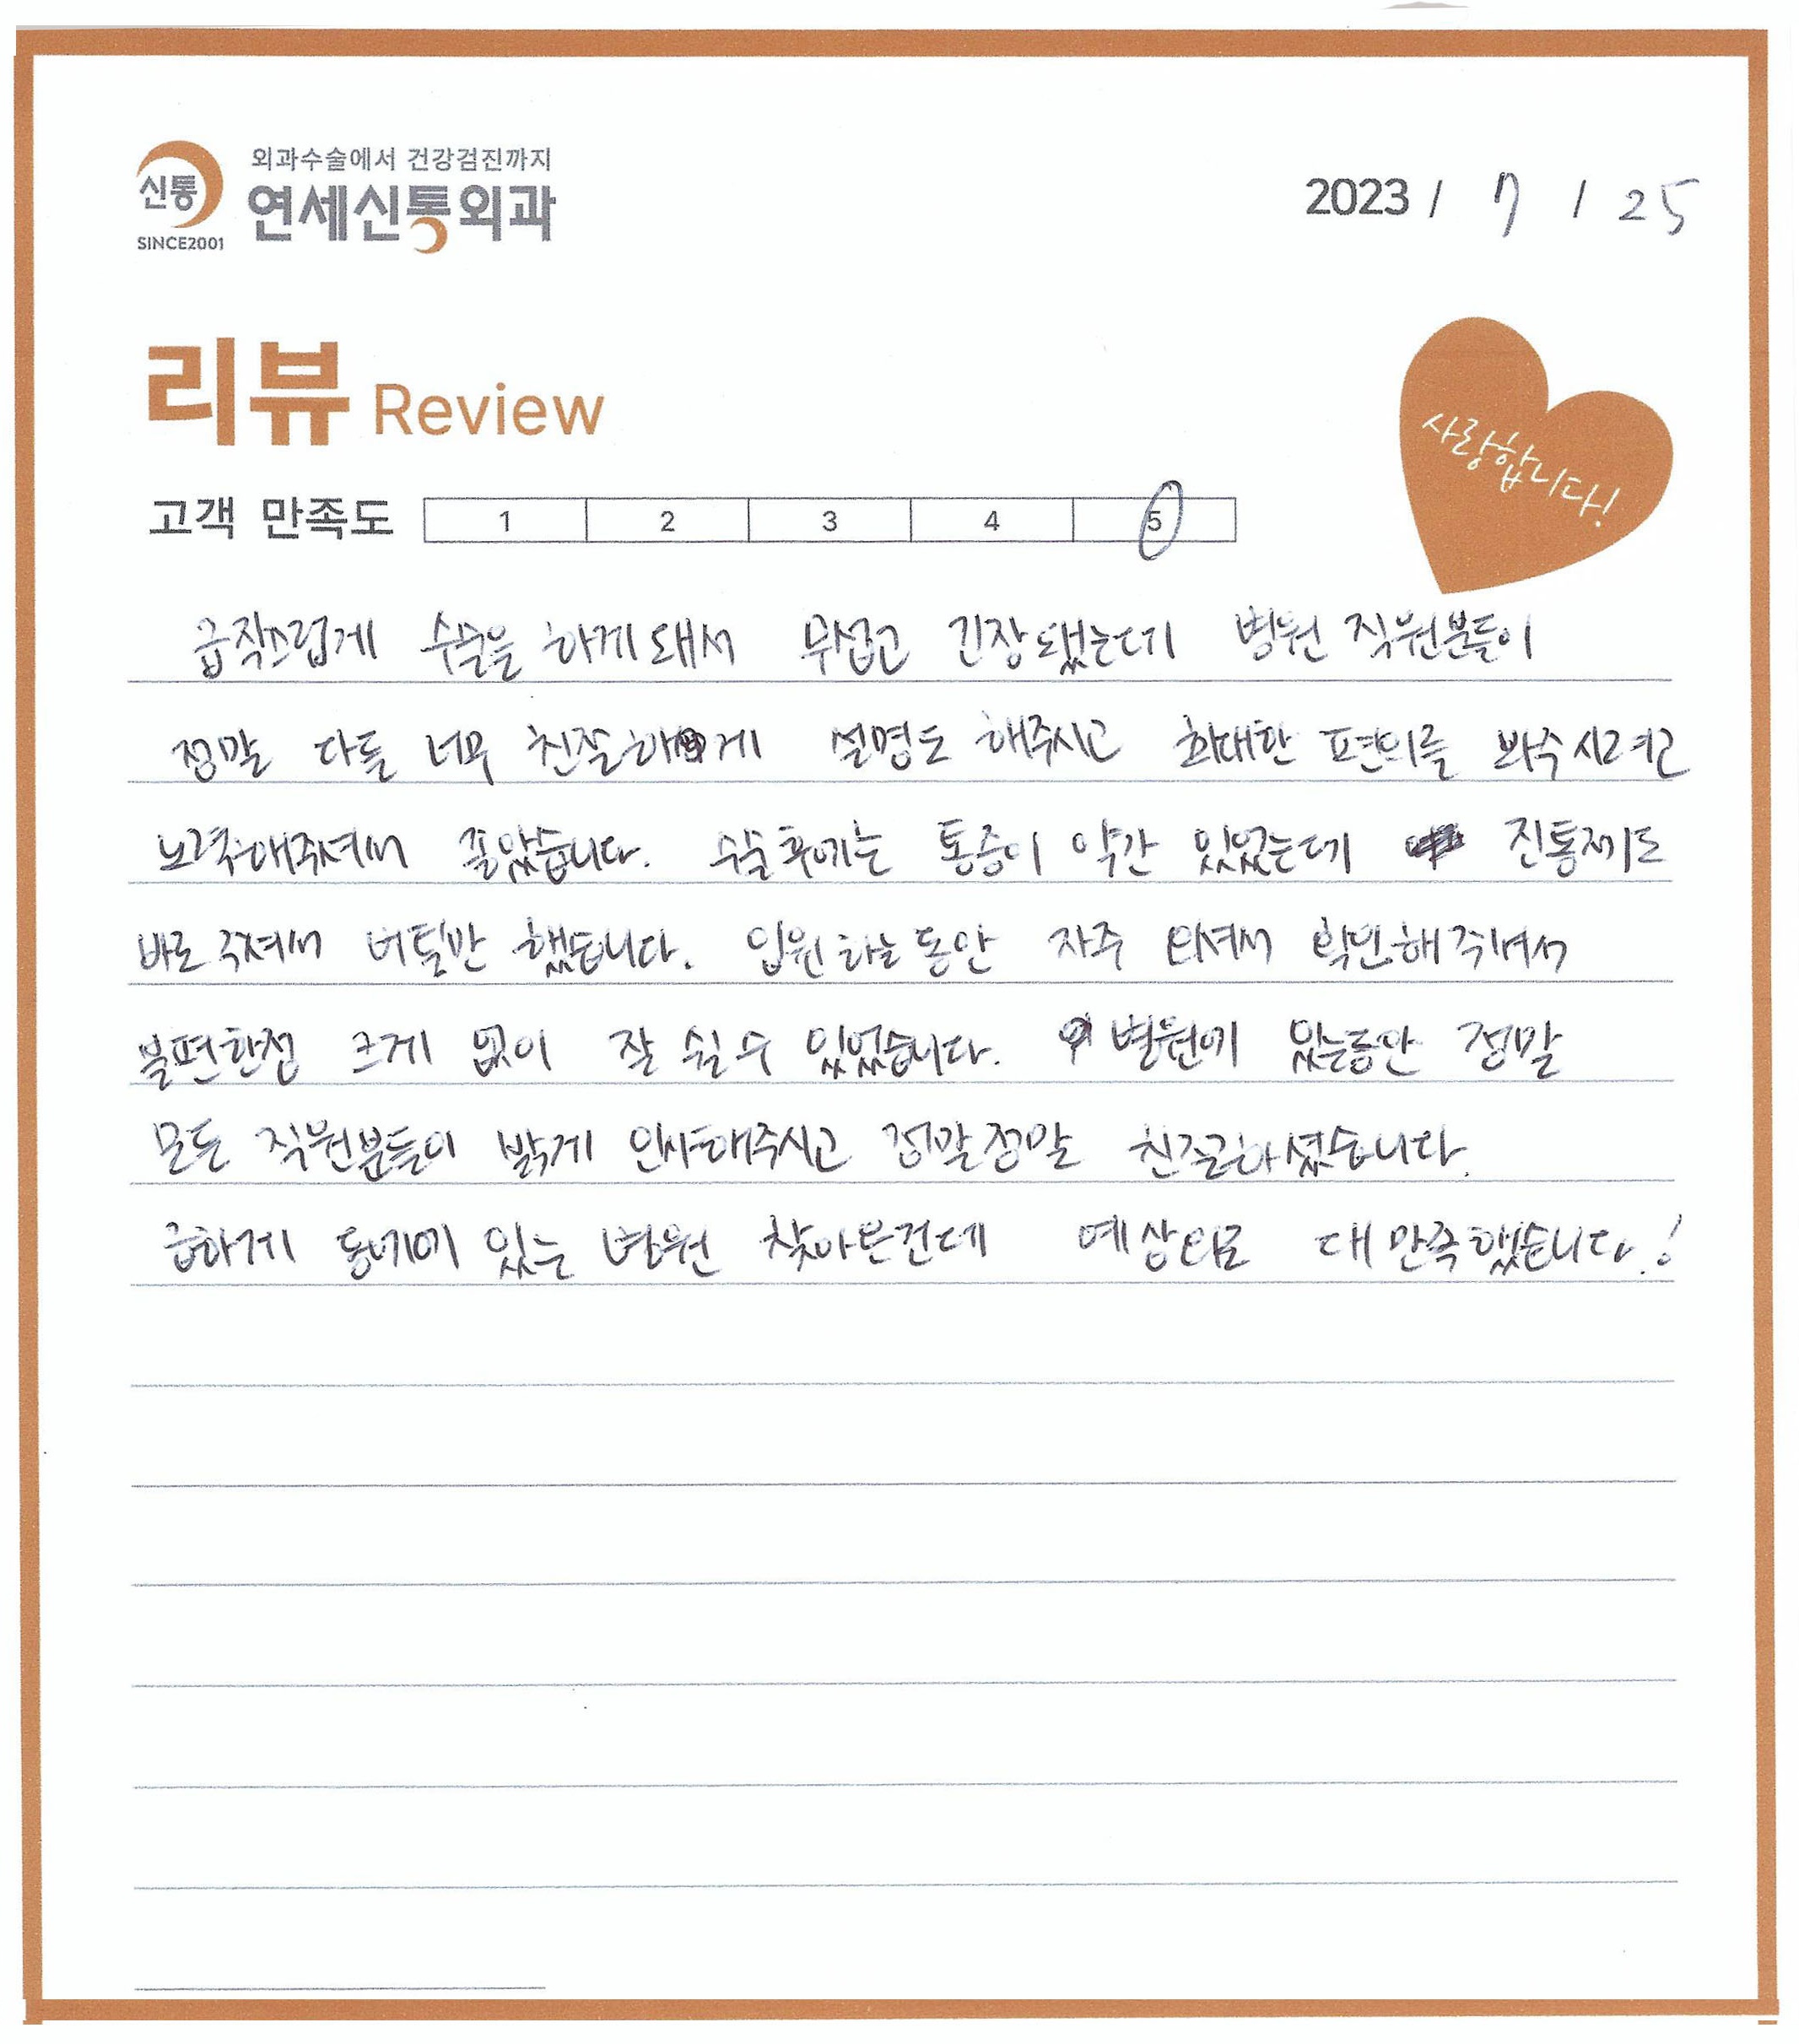 신통
SINCE2001
외과수술에서 건강검진까지
연세신통외과
2023 / 7 / 25
리뷰 Review
사랑합니다!
고객 만족도 1 2 3 4 5
급작스럽게 수술을 하게돼서 무섭고 긴장됐는데 병원 직원분들이
정말 다들 너무 친절하게 설명도 해주시고 최대한 편의를 봐주시려고
노력해주셔서 좋았습니다. 수술후에는 통증이 약간 있었는데 진통제도
바로 주셔서 버틸만 했습니다. 입원하는동안 자주 오셔서 확인해주셔서
불편한점 크게 없이 잘 쉴수 있었습니다. 병원에 있는동안 정말
모든 직원분들이 밝게 인사해주시고 정말정말 친절하셨습니다.
급하게 동네에 있는 병원 찾아온건데 예상외로 대만족했습니다.!